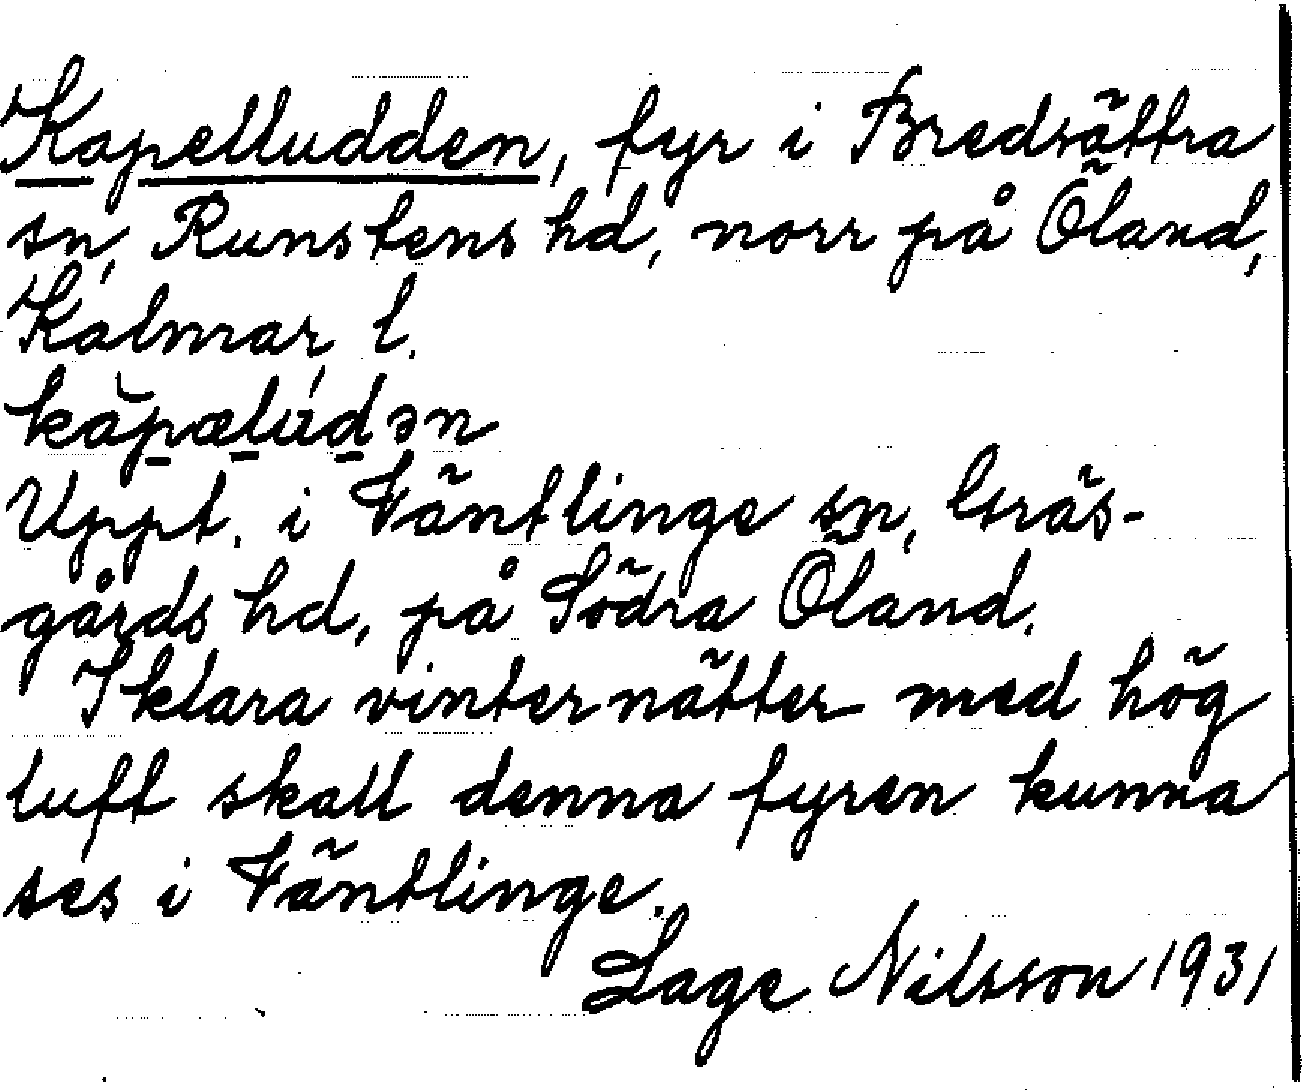 Kapelludden, fyr i Bredsättra
sn, Runstens hd, norr på Öland,
Kalmar l.
kàpælúdən
Uppt. i Väntlinge sn, Gräs-
gårds hd, på Södra Öland.
I klara vinternätter med hög
luft skall denna fyren kunna
ses i Väntlinge.
Sage Nilsson 1931